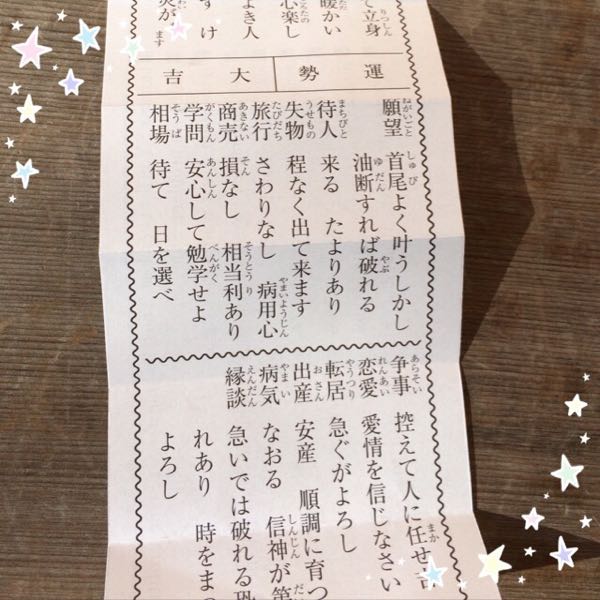 て立身
暖かい
心楽し
よき人
け
運勢 大吉
願望 首尾よく叶うしかし
油断すれば破れる
待人 来る たよりあり
失物 程なく出て来ます
旅行 さわりなし 病用心
商売 損なし 相当利あり
学問 安心して勉学せよ
相場 待て 日を選べ
争事 控えて人に任せ吉
恋愛 愛情を信じなさい
転居 急ぐがよろし
出産 安産 順調に育つ
病気 なおる 信神が第
縁談 急いでは破れる恐
れあり 時をまつ
よろし